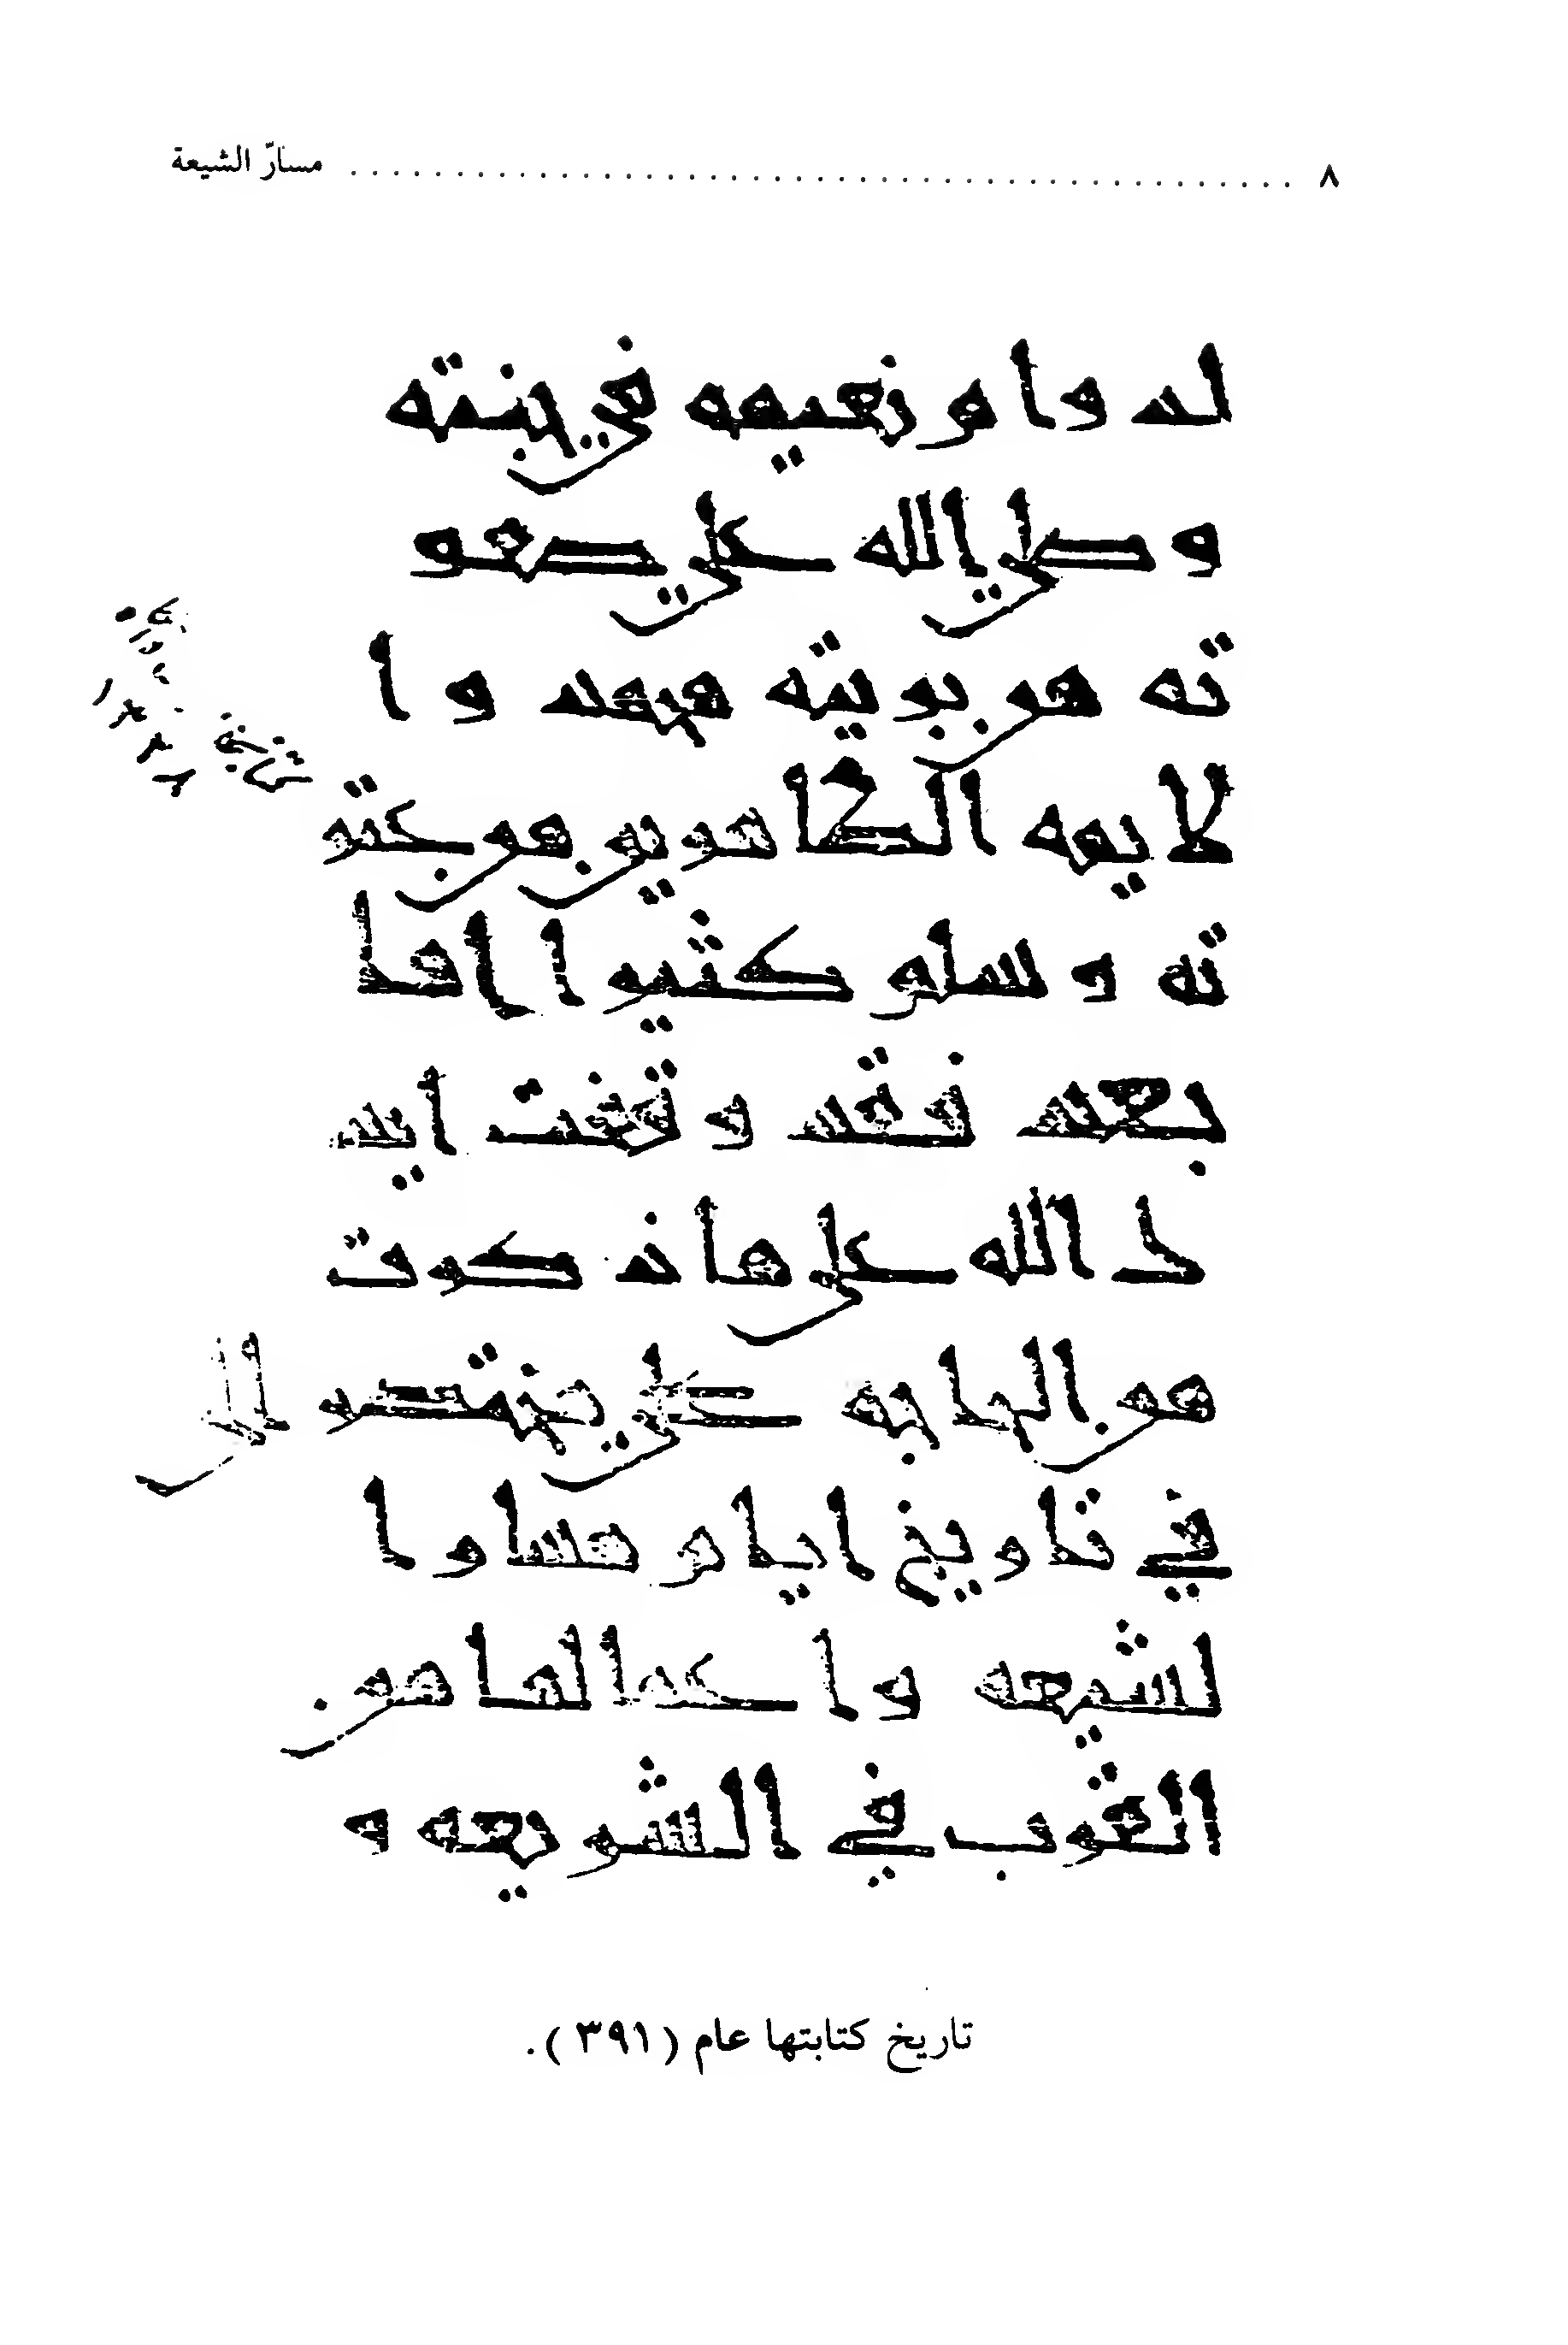 ٨ مسارّ الشيعة
لد وام نعيمه في جنته
وصلي الله علي صفو
ته من بريته محمد وا
لايمه الطاهرين من عتر
ته وسلم كثيرا اما
بعد فقد وقفت ايد
ك الله على ما ذكرت
من الحاجه علي مختصر الى
في تاريخ ايام مسار ا
لشيعه واعمالها من
القرب في الشريعه و
تاريخ كتابتها عام (٣٩١).